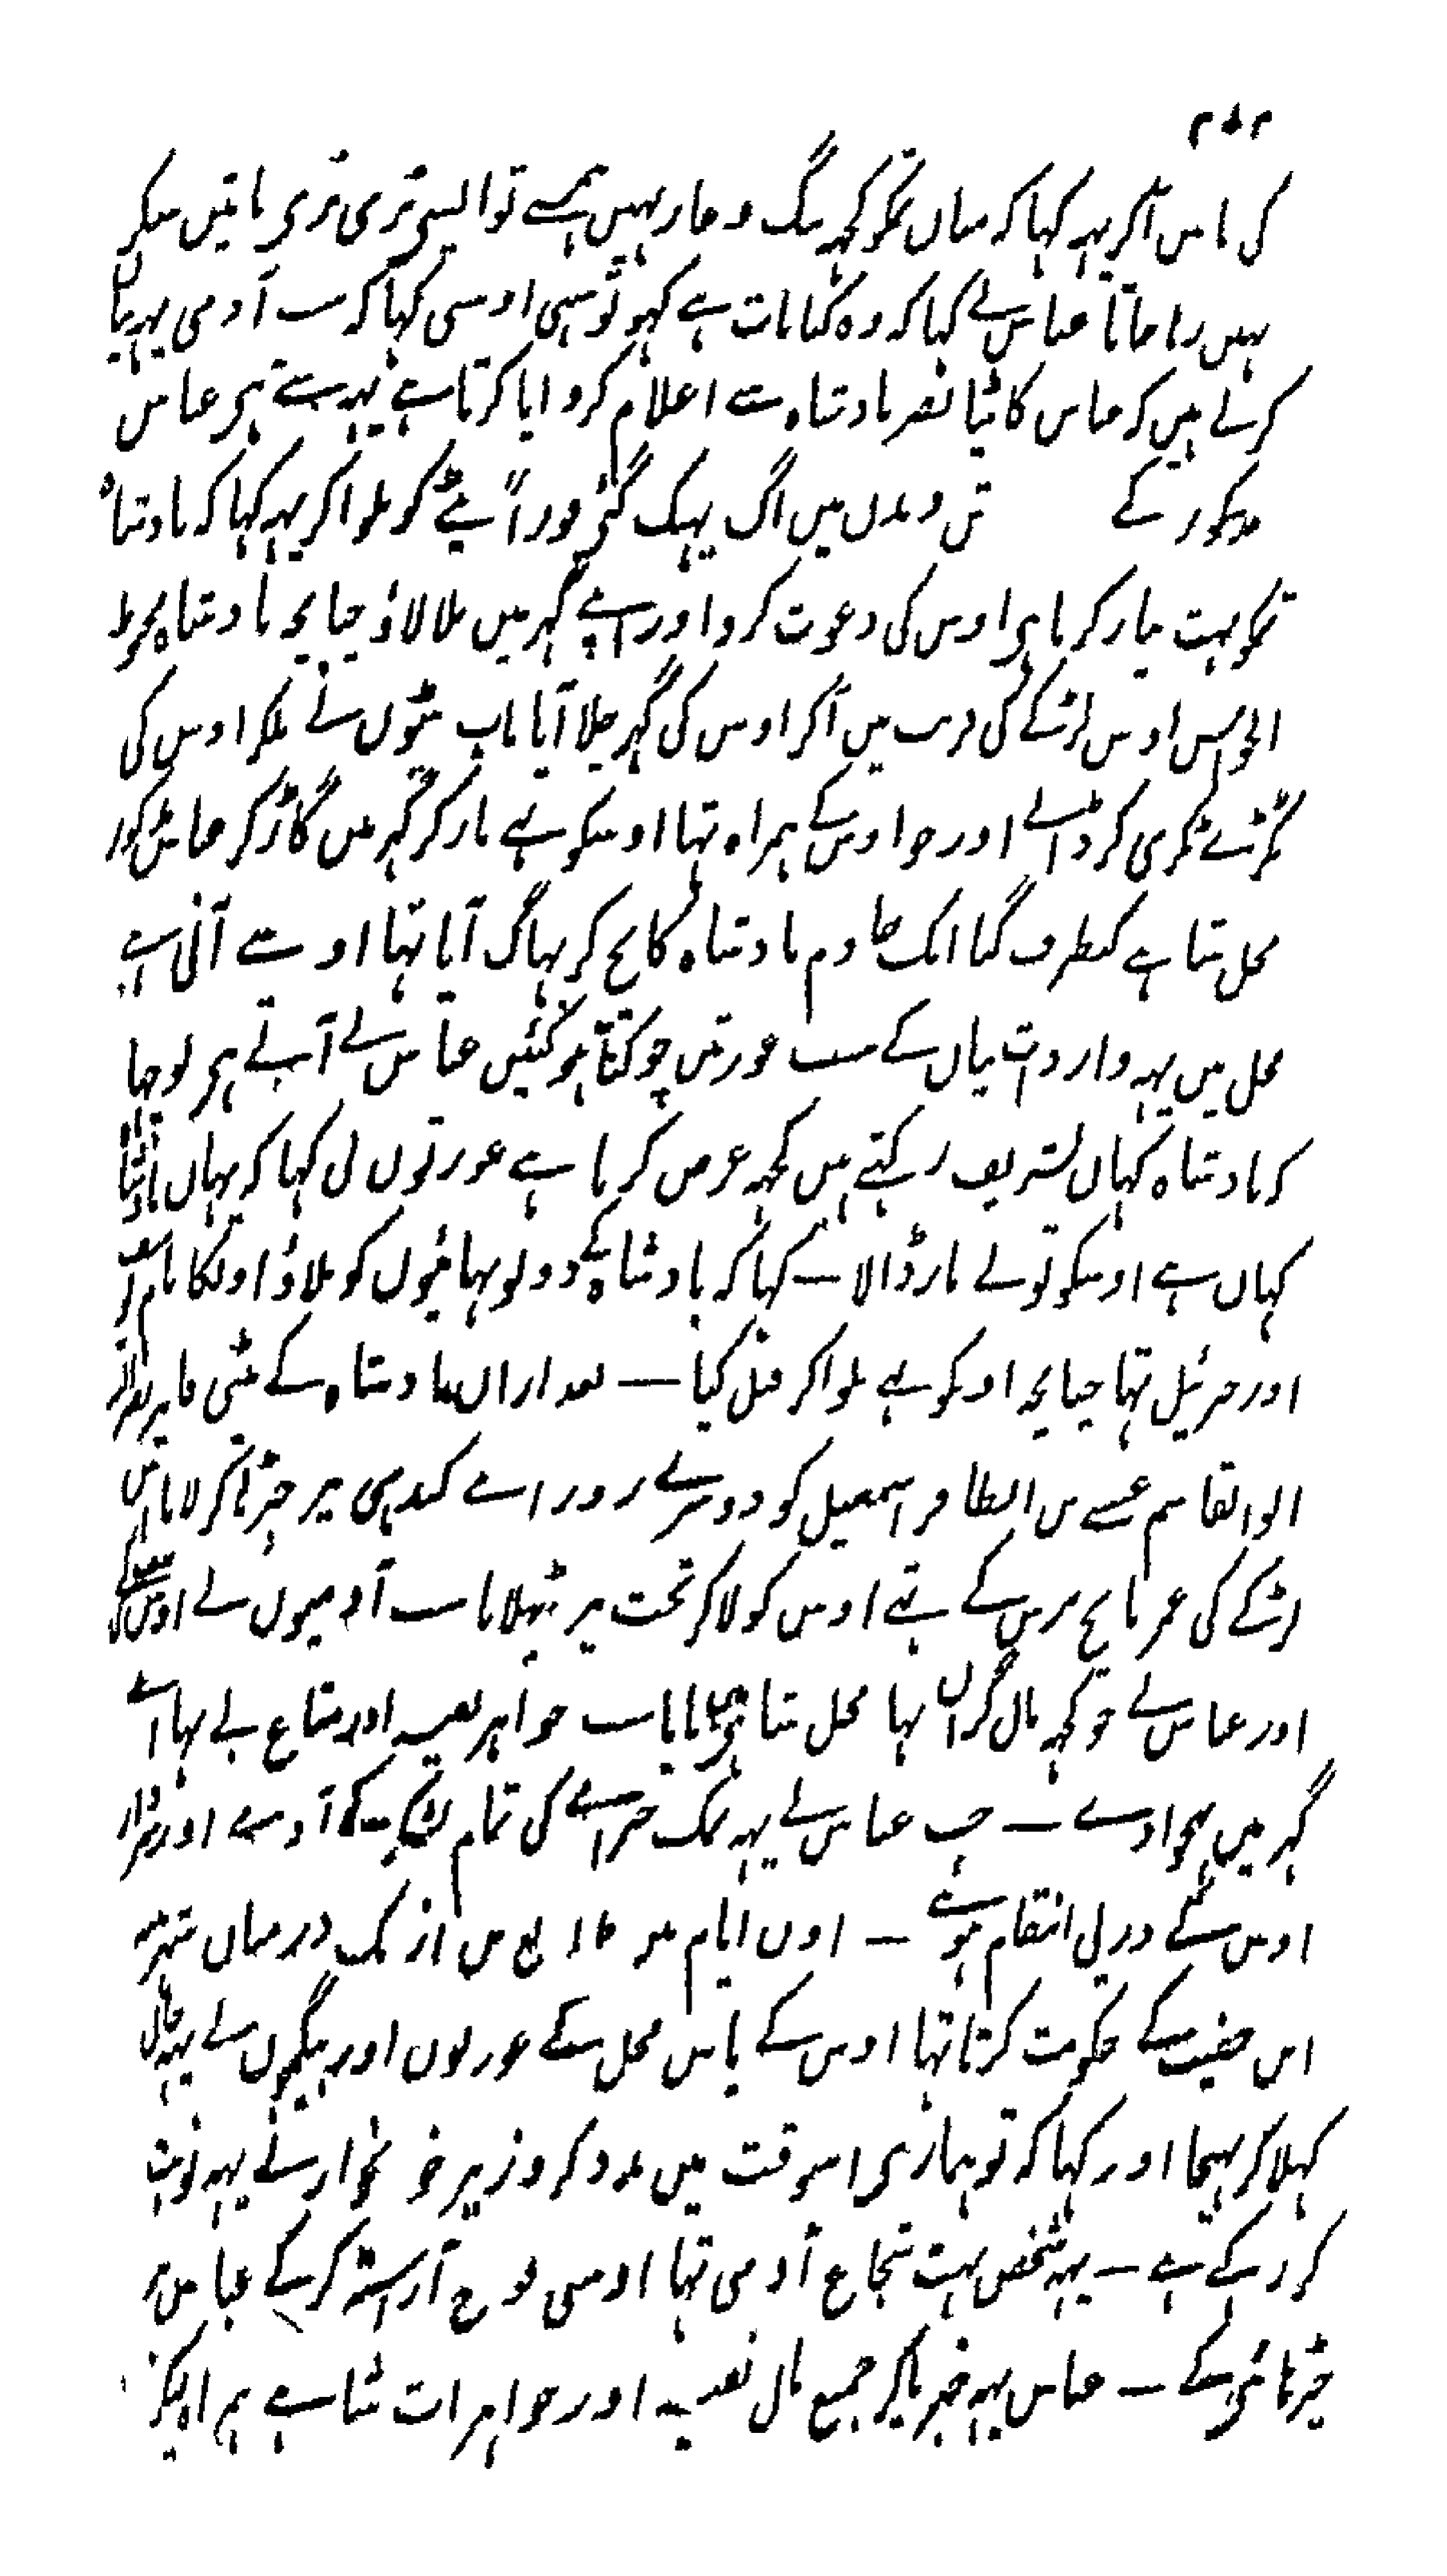 ۲۵۲
کی پاس آکر یہہ کہا کہ میاں تمکو کچہہ ننگ و عار نہیں ہمسے تو ایسی بڑی بڑی باتیں سنکر
نہیں رہا جاتا عباس نے کہا کہ وہ کیا بات ہے کہو تو سہی اوسی کہا کہ سب آدمی یہہ بیاں
کرتے ہیں کہ عباس کا بیٹا نصر بادشاہ سے اعلام کروایا کرتا ہے یہہ سنتے ہی عباس
مذکور کے تن و بدن میں اگ پہک گئی فوراً بیٹے کو بلوا کر یہہ کہا کہ بادشاہ
تمکو بہت پیار کرتا ہی اوس کی دعوت کرو اور اپنے گہر میں بلا لاؤ چنانچہ بادشاہ
اوس لڑکے کی میں آکر اوس کی گہر چلا آیا باپ بیٹوں نے ملکر اوس کی
ٹکڑے ٹکڑی کر ڈالے اور جو اوس کے ہمراہ تہا اوسکو بہی مار کر گہر میں گاڑ کر عباس مذکور
محل شاہی کیطرف گیا ایک خادم بادشاہ کا بچ کر بہاگ آیا تہا اوسے آتی ہی
محل میں یہہ واردات بیاں کے سب عورتیں چوکنا ہو گئیں عباس نے آتے ہی پوچہا
کہ بادشاہ کہاں تشریف رکہتے ہیں کچہہ عرض کرنا ہے عورتوں نی کہا کہ یہاں
کہاں ہے اوسکو تو نے مار ڈالا — کہا کہ بادشاہ کے دونو بہائیوں کو بلاؤ اونکا نام
اور جبرئیل تہا چنانچہ اونکو بہی بلوا کر قتل کیا — بعد ازاں بادشاہ کے بیٹی
ابو القاسم عیسے بن الظافر اسمعیل کو دوسرے روز اپنے کندہی پر چڑہا کر لایا اس
لڑکے کی عمر پانچ برس کے تہی اوس کو لاکر تخت پر بٹہلایا سب آدمیوں نے
اور عباس نے جو کچہہ مال گراں بہا محل شاہی پایا سب جواہر نفیسہ اور متاع بے بہا اپنے
گہر میں بہجوادے — جب عباس نے یہہ نمک حرامے کی تمام آدمے اور
اوس کے درپی انتقام ہوے — اون ایام میں صالح بن ازیک درمیاں شہر
ابن خصیب کے حکومت کرتا تہا اوس کے پاس محل کے عورتوں اور بیگموں نے یہہ حال
کہلا کر بہیجا اور کہا کہ تو ہماری اسوقت میں مدد کر وزیر خونخوار نے یہہ نوبت
کر رکہے ہے — یہہ شخص بہت شجاع آدمی تہا اوسی فوج آراستہ کر کے عباس پر
چڑہائی کے — عباس یہہ خبر پاکر جمیع مال نفیسہ اور جواہرات شاہی ہمراہ لیکر